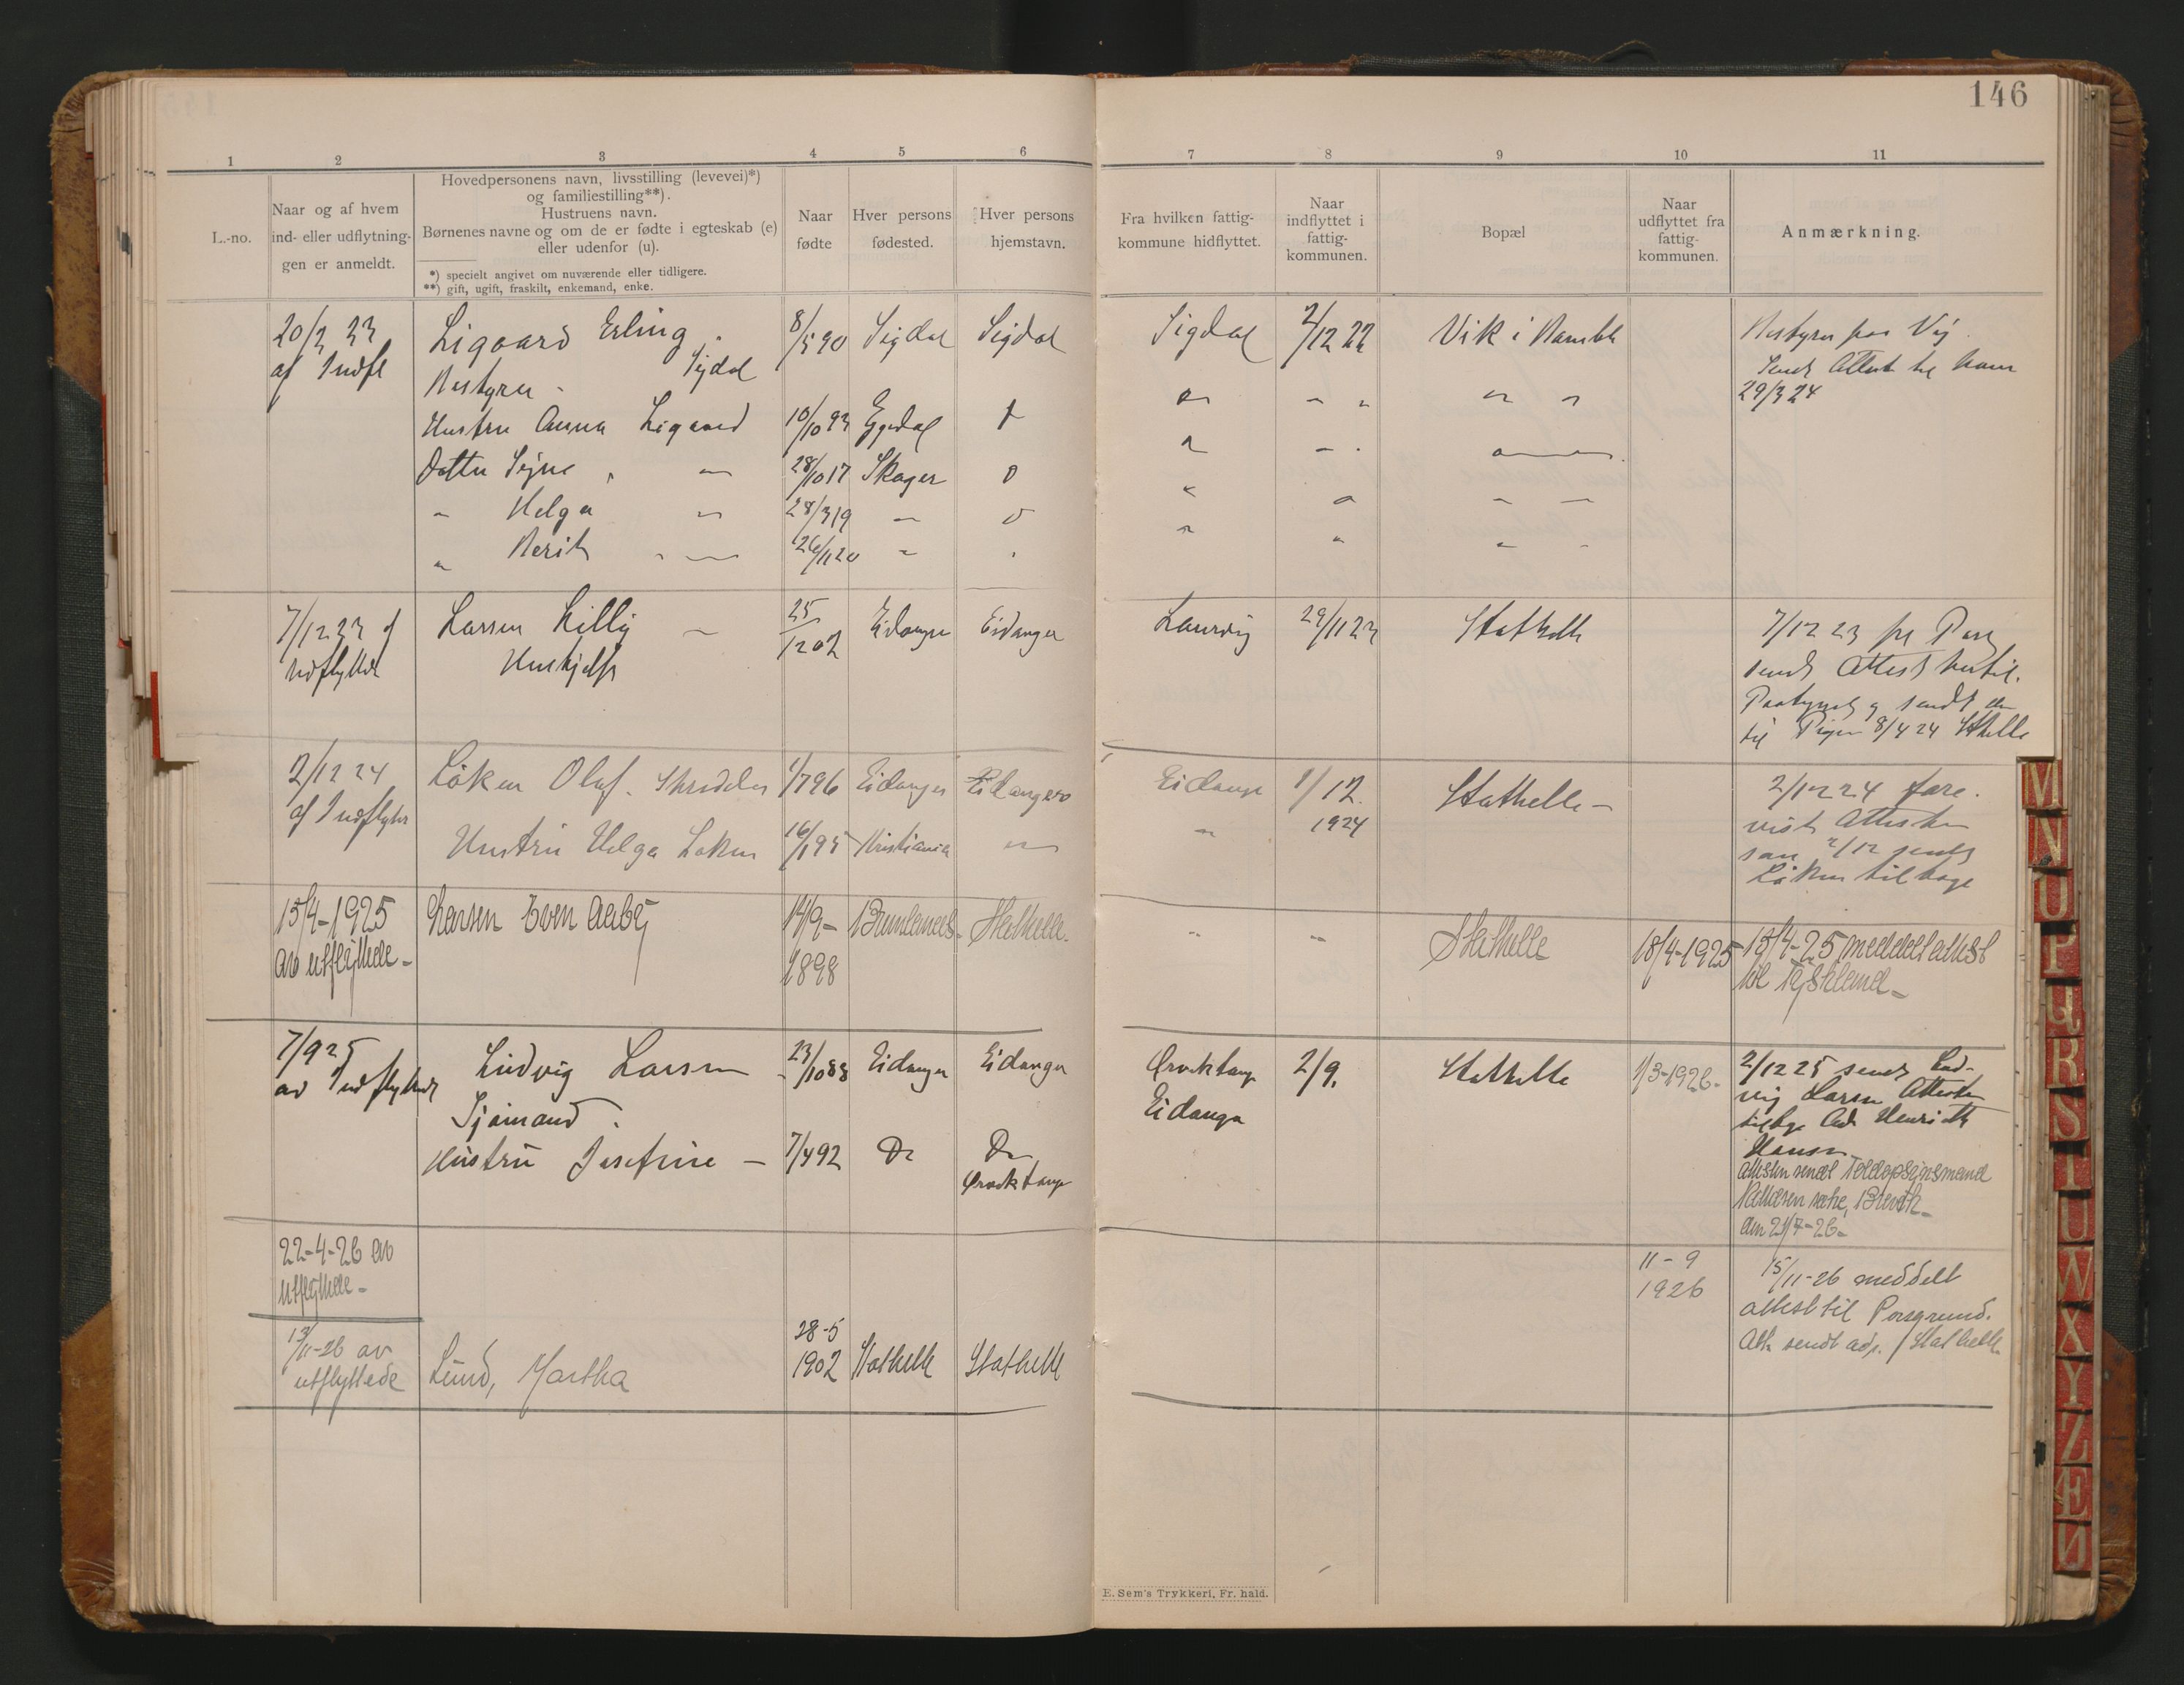 146
1 2 3 4 5 6 7 8 9 10 11
L.-no.
Naar og af hvem
ind- eller udflytnin-
gen er anmeldt.
Hovedpersonens navn, livsstilling (levevei)*)
og familiestilling**).
Hustruens navn.
Børnenes navne og om de er fødte i egteskab (e)
eller udenfor (u).
*) specielt angivet om nuværende eller tidligere.
**) gift, ugift, fraskilt, enkemand, enke.
Naar
fødte
Hver persons
fødested.
Hver persons
hjemstavn.
Fra hvilken fattig-
kommune hidflyttet.
Naar
indflyttet i
fattig-
kommunen.
Bopæl
Naar
udflyttet fra
fattig-
kommunen.
Anmærkning.
20/3 23
af Indfl
Ligaard Erling
Sigdal
Bestyrer
8/5 90 Sigdal Sigdal Sigdal 2/12 22 Vik i Bamble
Bestyrer paa Vig
Sendt Attest til ham
29/3 24
Hustru Anna Ligaard 10/10 93 Eggedal
Datter Signe " — 28/10 17 Skoger
" Helga " 28/3 19 "
" Berit " — 26/11 20 "
7/12 23 af
Udflyttede
Larsen Lilly —
Hushjelp
25/12 02 Eidanger Eidanger Laurvig 29/11 23 Stathelle
7/12 23
sendt Attest hertil.
Paategnet og sendt den
til Pigen 8/4 24 Sthelle
2/12 24
af Indflytter
Löken Olaf. Skrædder 1/7 96 Eidanger Eidanger Eidanger 1/12.
1924
Stathelle —
2/12 24 fore-
vist Attesten
som 2/12 sendt
Löken tilbage
Hustru Helga Løken 16/1 95 Kristiania " "
15/4-1925
av utflyttede-
Larsen Even Aaby 14/9-
1898
Brunlanes- Stathelle- " " Stathelle 18/4-1925
15/4-25 meddelt attest
til Tyskland-
7/9 25
av Indflyttede
Ludvig Larsen
Sjømand.
23/10 88 Eidanger Eidanger Ørviktangen
Eidanger
2/9. Stathelle 1/3-1926-
2/12 25 sendt Lud-
vig Larsen Attesten
tilbage Adr Henrik
Hansen
Attesten sendt Toldopsynsmand
Brevik-
den 21/7-26-
Hustru Josefine — 7/4 92 Do Do
Ørviktangen
22-4-26 av
utflyttede-
13/11-26 av
utflyttede
Lund, Martha
28-5
1902
Stathelle Stathelle
11-9
1926
15/11-26 meddelt
attest til Porsgrund.
Att. sendt adr. Stathelle
E. Sem's Trykkeri, Fr. hald.
M
N
O
P
Q
R
S
T
U
W
X
Y
Z
Æ